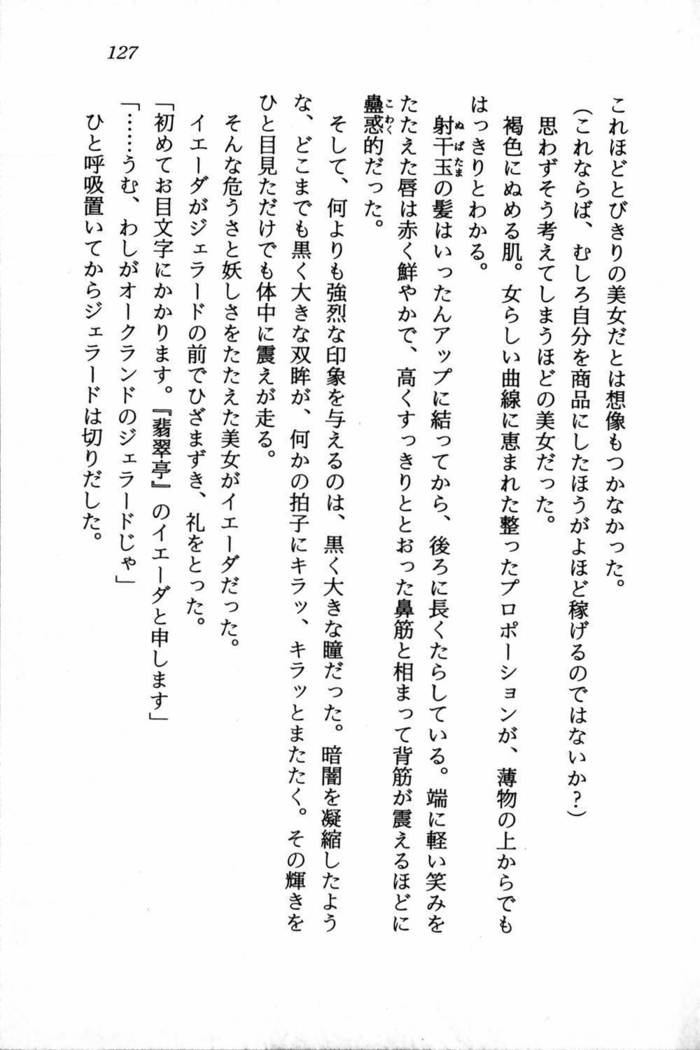 127
これほどとびきりの美女だとは想像もつかなかった。
(これならば、むしろ自分を商品にしたほうがよほど稼げるのではないか?)
思わずそう考えてしまうほどの美女だった。
褐色にぬめる肌。女らしい曲線に恵まれた整ったプロポーションが、薄物の上からでも
はっきりとわかる。
射干玉の髪はいったんアップに結ってから、後ろに長くたらしている。端に軽い笑みを
ぬばたま
たたえた唇は赤く鮮やかで、高くすっきりととおった鼻筋と相まって背筋が震えるほどに
蠱惑的だった。
こわく
そして、何よりも強烈な印象を与えるのは、黒く大きな瞳だった。暗闇を凝縮したよう
な、どこまでも黒く大きな双眸が、何かの拍子にキラッ、キラッとまたたく。その輝きを
ひと目見ただけでも体中に震えが走る。
そんな危うさと妖しさをたたえた美女がイエーダだった。
イエーダがジェラードの前でひざまずき、礼をとった。
「初めてお目文字にかかります。『翡翠亭』のイエーダと申します」
「……うむ、わしがオークランドのジェラードじゃ」
ひと呼吸置いてからジェラードは切りだした。